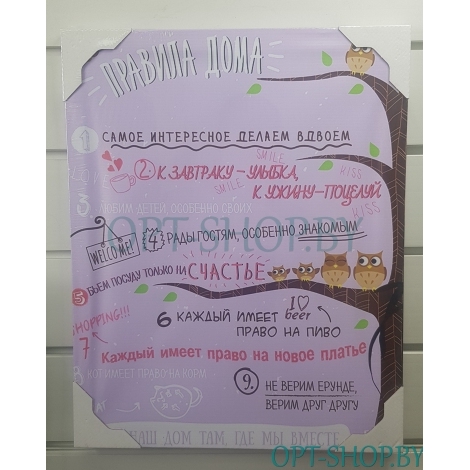 ПРАВИЛА ДОМА
1 САМОЕ ИНТЕРЕСНОЕ ДЕЛАЕМ ВДВОЕМ
SMILE
KISS
2. К ЗАВТРАКУ – УЛЫБКА,
SMILE
К УЖИНУ – ПОЦЕЛУЙ
KISS
3 ЛЮБИМ ДЕТЕЙ, ОСОБЕННО СВОИХ
OPT-SHOP.BY
WELCOME!
4 РАДЫ ГОСТЯМ, ОСОБЕННО ЗНАКОМЫМ
5 БЬЕМ ПОСУДУ ТОЛЬКО НА СЧАСТЬЕ
I beer
SHOPPING!!!
6 КАЖДЫЙ ИМЕЕТ
ПРАВО НА ПИВО
7 Каждый имеет право на новое платье
8 КОТ ИМЕЕТ ПРАВО НА КОРМ
9. НЕ ВЕРИМ ЕРУНДЕ,
ВЕРИМ ДРУГ ДРУГУ
НАШ ДОМ ТАМ, ГДЕ МЫ ВМЕСТЕ
OPT-SHOP.BY